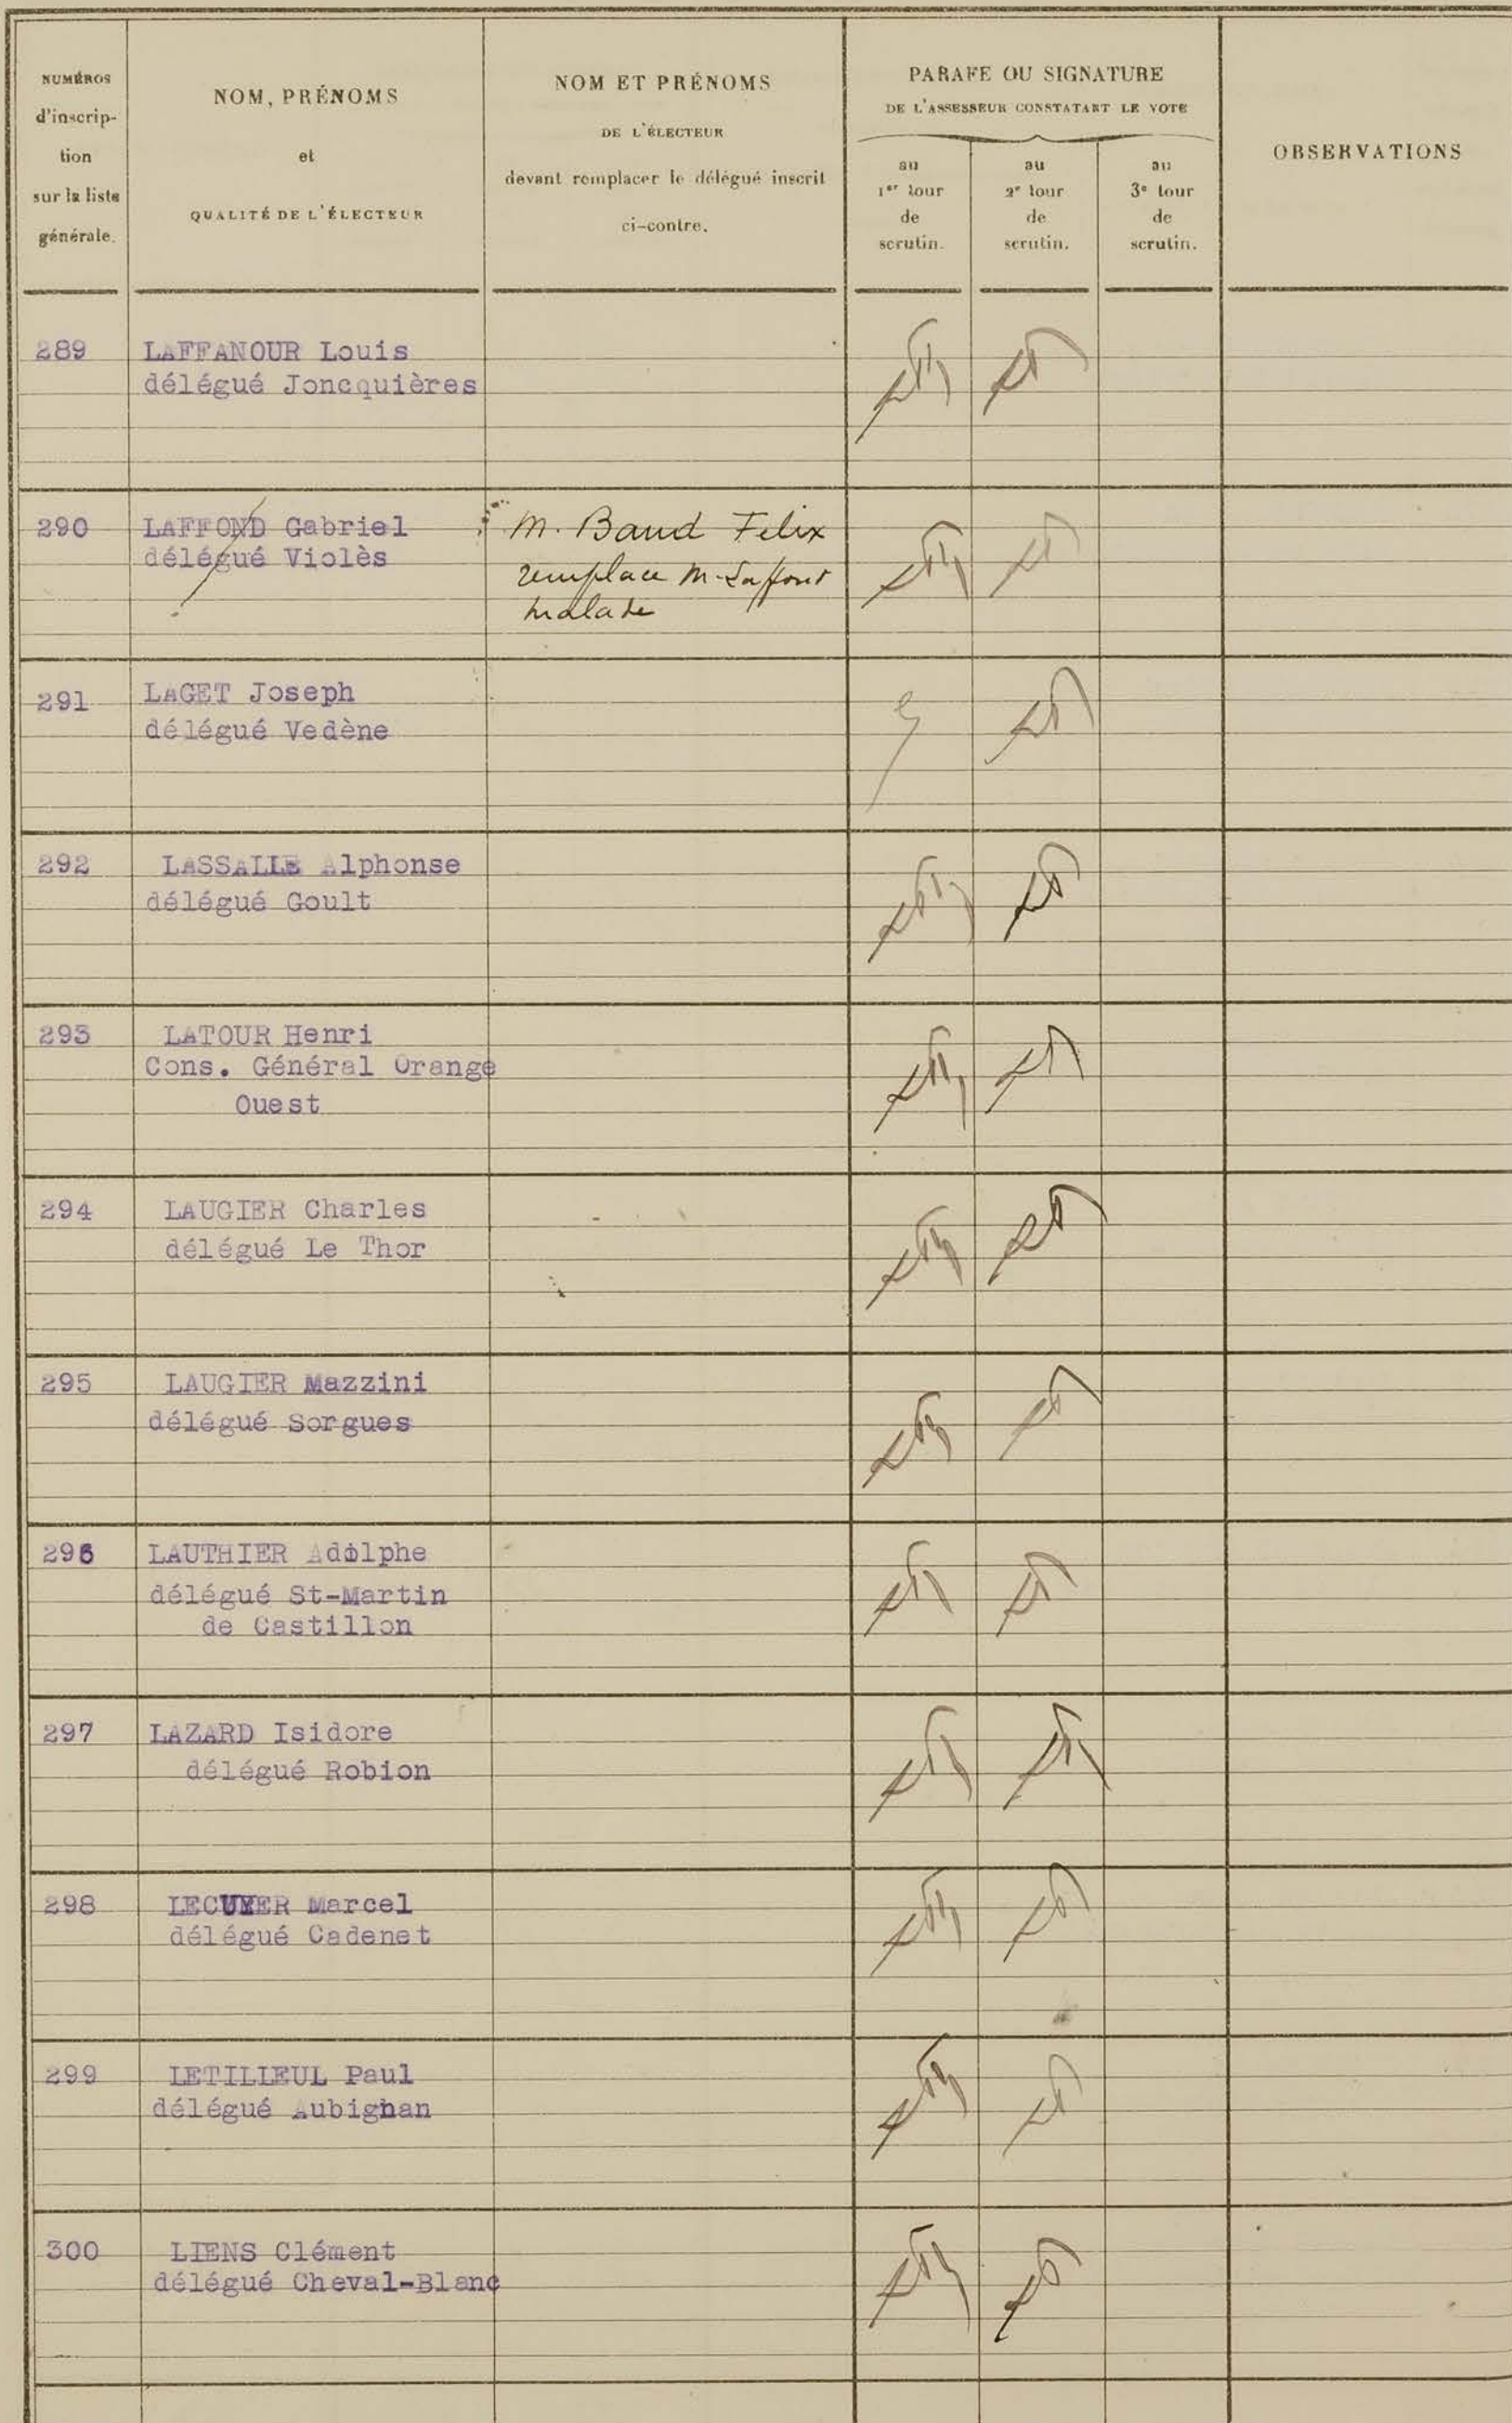 NUMÉROS
d'inscrip-
tion
sur la liste
générale.
NOM, PRÉNOMS
et
QUALITÉ DE L'ÉLECTEUR
NOM ET PRÉNOMS
DE L'ÉLECTEUR
devant remplacer le délégué inscrit
ci-contre.
PARAFE OU SIGNATURE
DE L'ASSESSEUR CONSTATANT LE VOTE
au
1er tour
de
scrutin.
au
2e tour
de
scrutin.
au
3e tour
de
scrutin.
OBSERVATIONS
289 LAFFANOUR Louis
délégué Joncquières
290 LAFFOND Gabriel M. Baud Felix
délégué Violès remplace M. Laffont
malade
291 LAGET Joseph
délégué Vedène
292 LASSALLE Alphonse
délégué Goult
293 LATOUR Henri
Cons. Général Orange
Ouest
294 LAUGIER Charles
délégué Le Thor
295 LAUGIER Mazzini
délégué Sorgues
296 LAUTHIER Adolphe
délégué St-Martin
de Castillon
297 LAZARD Isidore
délégué Robion
298 LECUYER Marcel
délégué Cadenet
299 LETILIEUL Paul
délégué Aubignan
300 LIENS Clément
délégué Cheval-Blanc